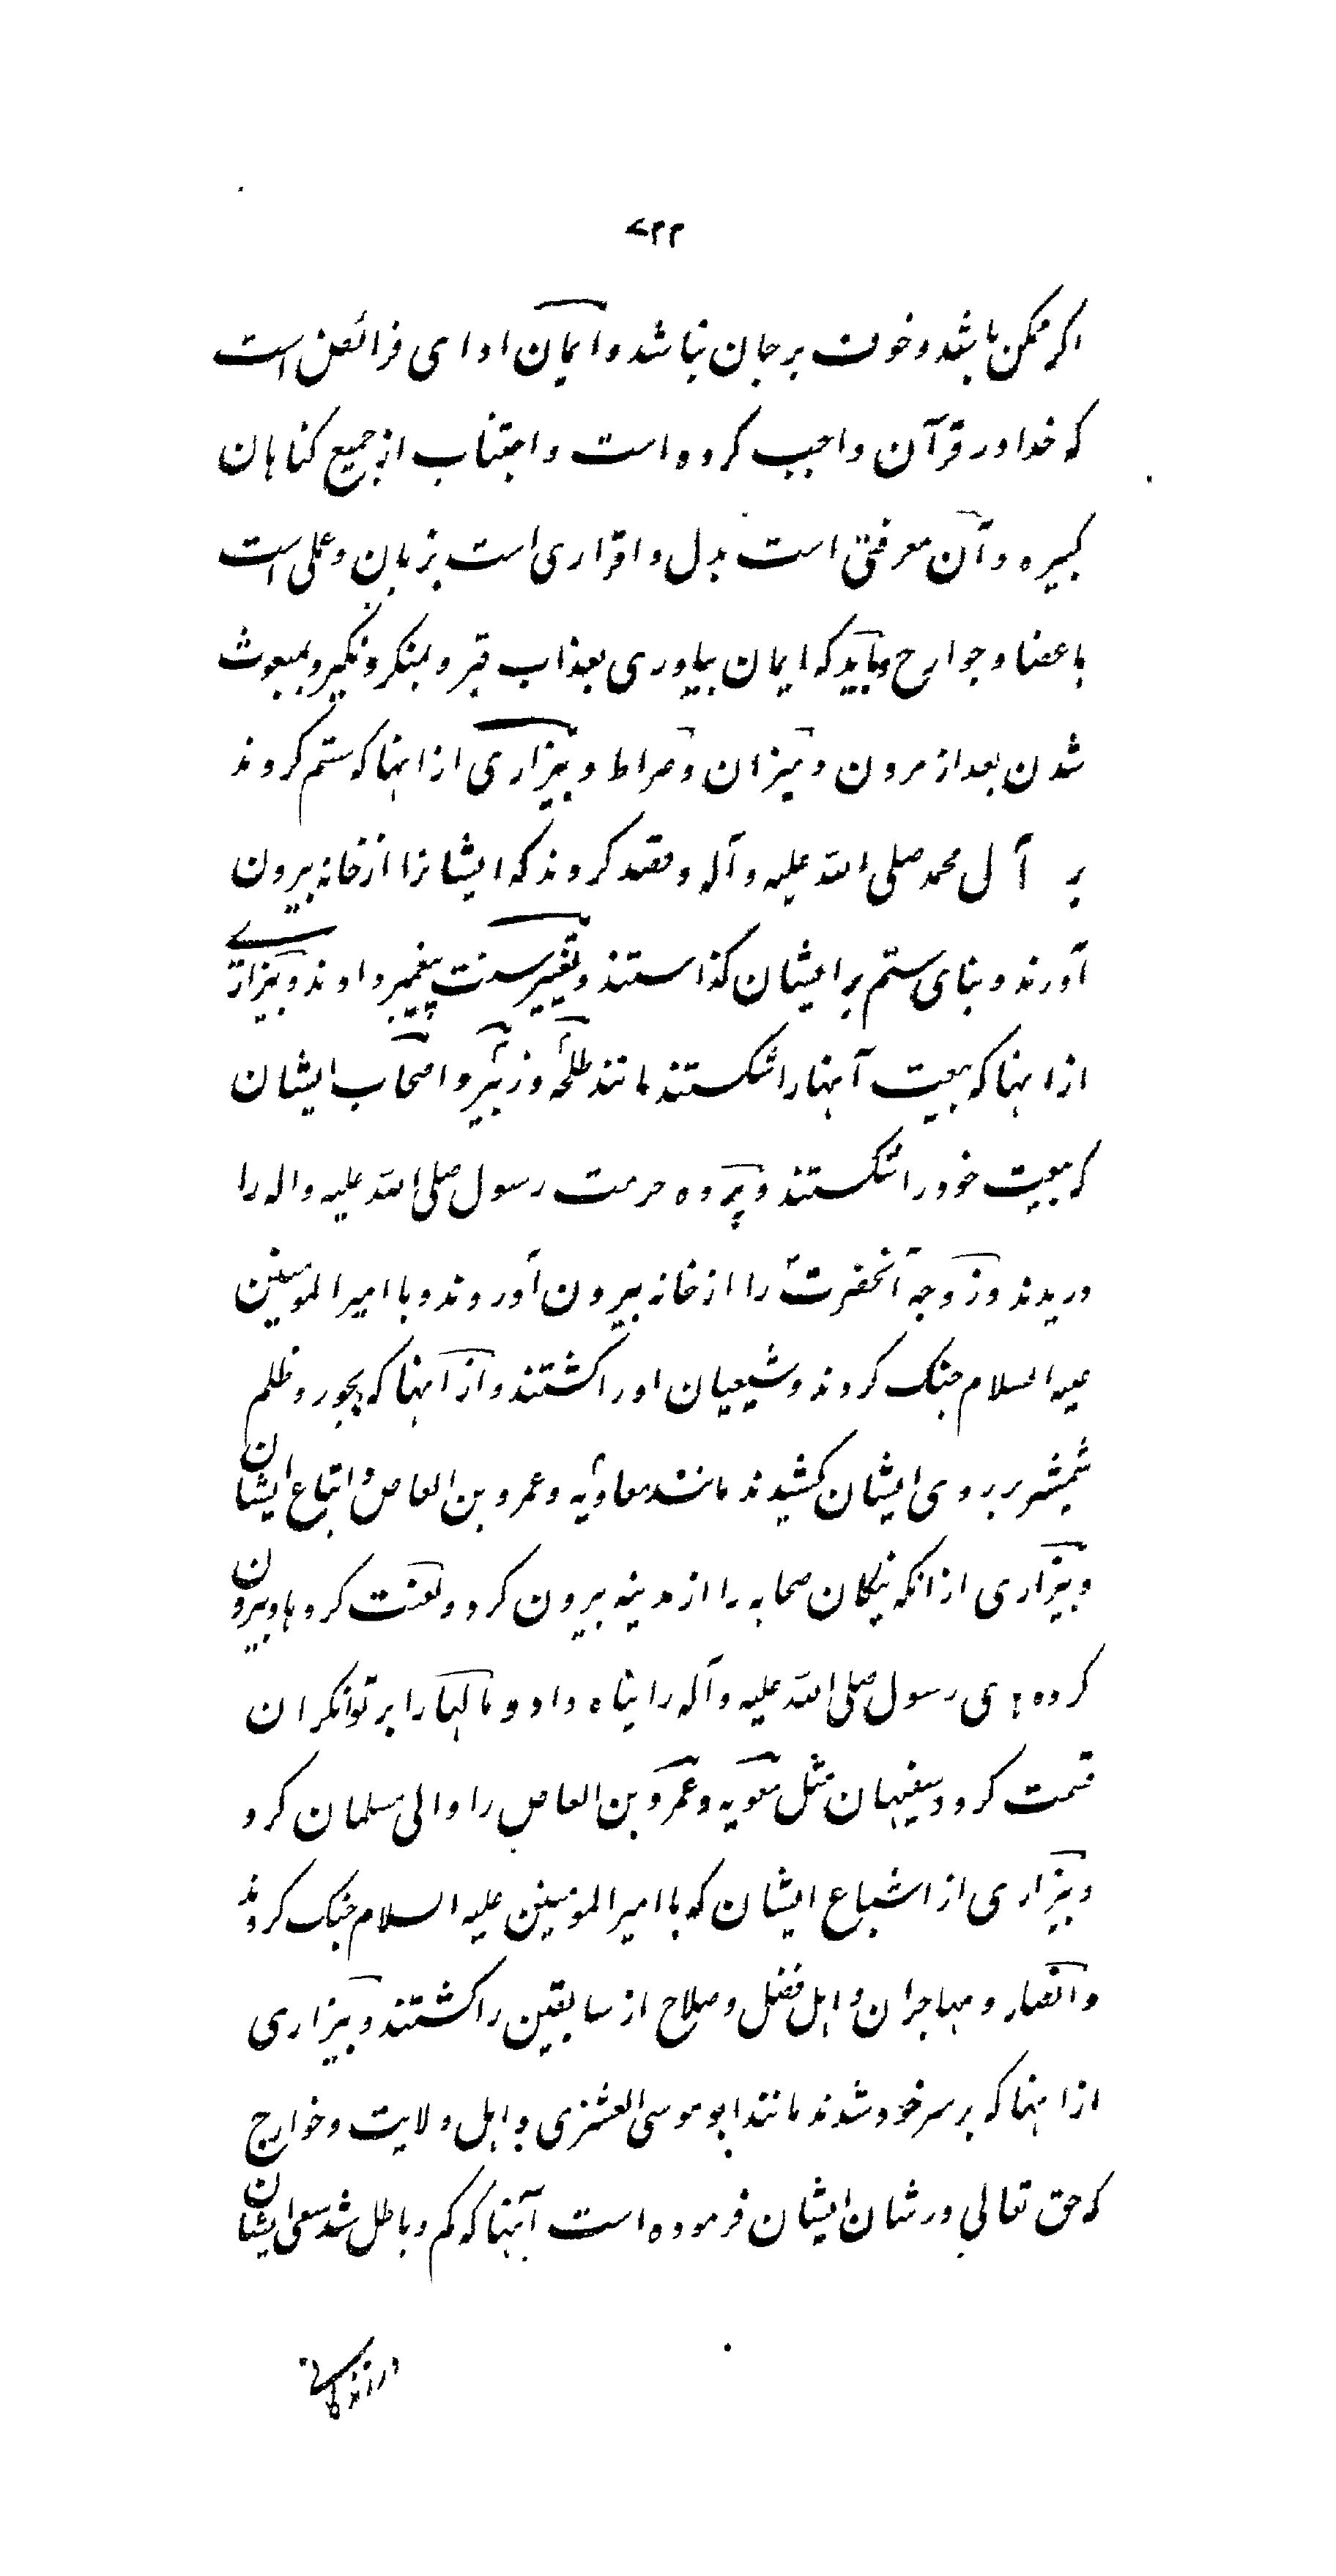 ۷۲۲
اکر ممکن باشد و خوف بر جان نباشد و ایمان ادای فرائض است
که خدا در قرآن واجب کرده است و اجتناب از جمیع کناهان
کبیره و آن معرفتی است بدل و اقراری است بزبان و عملی است
باعضا و جوارح و باید که ایمان بیاوری بعذاب قبر و بمنکر و نکیر و بمبعوث
شدن بعد از مردن و میزان و صراط و بیزاری از انها که ستم کردند
بر آل محمد صلی الله علیه و آله و قصد کردند که ایشانرا از خانه بیرون
آورند و بنای ستم بر ایشان کذاستند و تغییر سنت پیغمبر دادند و بیزاری
از انها که بیعت آنها را شکستند مانند طلحه و زبیر و اصحاب ایشان
که بیعت خود را شکستند و پرده حرمت رسول صلی الله علیه واله را
دریدند و زوجه آنحضرت را از خانه بیرون آوردند و با امیر المومنین
علیه السلام جنک کردند و شیعیان او را کشتند و از انها که بجور و ظلم
شمشیر بر روی ایشان کشیدند مانند معاویه و عمرو بن العاص و اتباع ایشان
و بیزاری از انکه نیکان صحابه را از مدینه بیرون کرد و لعنت کردها و بیرون
کرده‌های رسول صلی الله علیه و آله را پناه داد و مالها را بر توانکران
قسمت کرد و سفیهان مثل معویه و عمرو بن العاص را والی مسلمانان کرد
و بیزاری از اشیاع ایشان که با امیر المومنین علیه السلام جنک کردند
و انصار و مهاجران و اهل فضل و صلاح از سابقین را کشتند و بیزاری
از انها که بر سر خود شدند مانند ابو موسی اشعری و اهل ولایت و خوارج
که حق تعالی در شان ایشان فرموده است آنها که کم و باطل شد سعی ایشان
در زندکانی